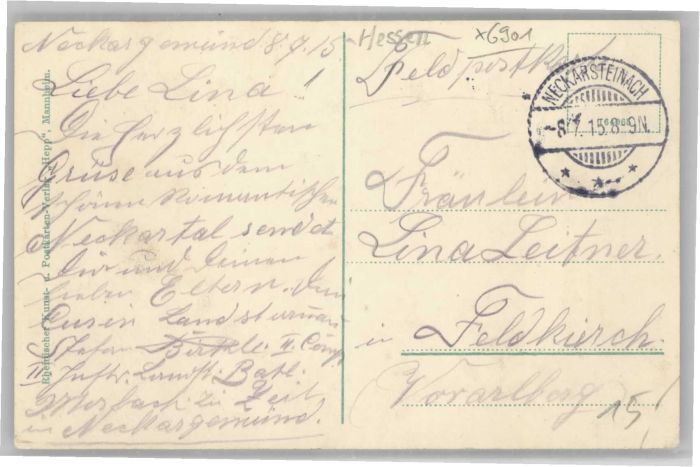 Neckargemünd 8.7.15
Liebe Lina!
Die herzlichsten
Grüse aus dem
schönen Romantischen
Neckartal sendet
Dir und deinen
lieben Eltern. Dein
Landsturmm
Stefan Birkle. II Comp
III Inftr. Landst. Batl.
Mosbach zu Zeit
in Neckargemünd.
Rheinischer Kunst- u. Postkarten-Verlag „Hepp“, Mannheim.
Hessen
x6901
Feldpostkarte
NECKARSTEINACH
-8.7.15.8-9N.
Fräulein
Lina Leitner.
in Feldkirch.
Vorarlberg
15